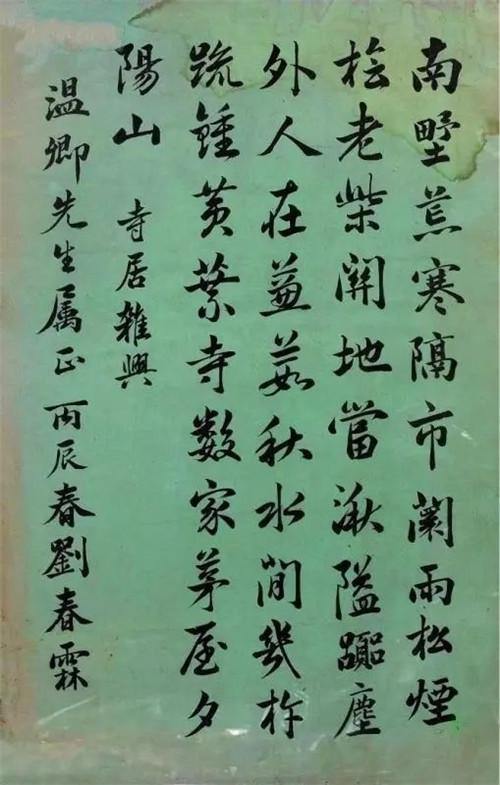 南墅荒寒隔市闤雨松煙
檜老柴關地當湫隘囂塵
外人在蒹葭秋水間幾杵
疏鍾黃葉寺數家茅屋夕
陽山 寺居雜興
溫卿先生属正丙辰春劉春霖